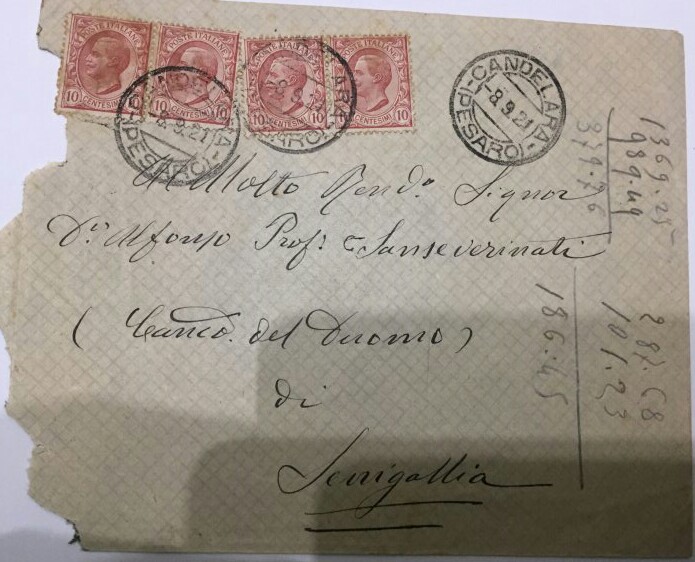 POSTE ITALIANE POSTE ITALIANE POSTE ITALIANE POSTE ITALIANE
10 CENTESIMI 10 10 CENTESIMI 10 10 CENTESIMI 10 10 CENTESIMI 10
CANDELARA
-8.9.21
(PESARO)
CANDELARA
-8.9.21
(PESARO)
Al Molto Rendo Signor
Dn Alfonso Profr Sanseverinati
(Canco. del Duomo)
di
Senigallia
1369.25
989.49
379.76
287.68
101.23
186.45